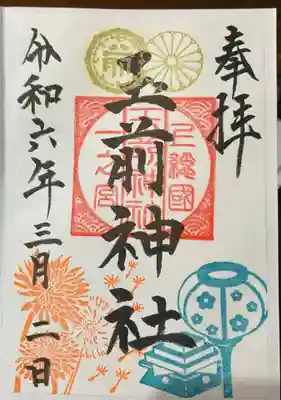 奉拝
上総國
玉前神社
一之宮
令和六年三月二日